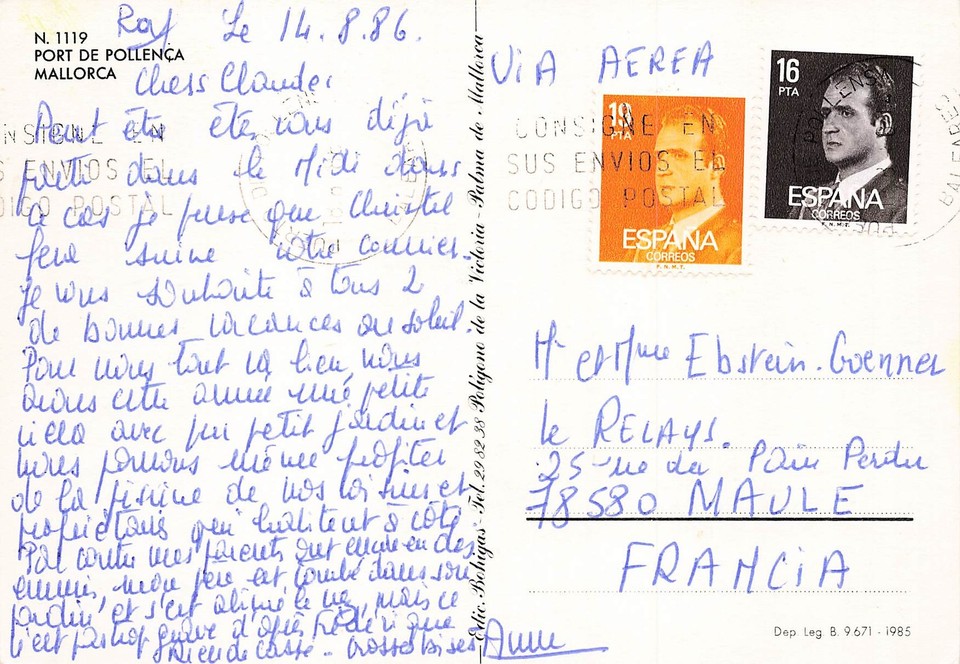 N. 1119
PORT DE POLLENÇA
MALLORCA
Le 14.8.86.
Chers Claudei
Peut être êtes vous déjà
partis dans le Midi dans
ce cas je pense que Christel
fera suivre votre courrier.
Je vous souhaite à tous 2
de bonnes vacances au soleil.
Pour nous tout va bien, nous
avons cette année une petite
villa avec un petit jardin et
nous pouvons même profiter
de la piscine de nos voisins et
propriétaires qui habitent à côté
Par contre mes parents ont encore eu des
ennuis, mon père est tombé dans son
jardin, et s'est abîmé le nez, mais ce
n'est pas trop grave d'après Frédéri que
Rien de cassé - Grosses bises Anne
Edic. Bohigas - Tel. 29 82 38 Polígono de la Victoria - Palma de Mallorca
VIA AEREA
CONSIGNE EN
SUS ENVIOS EL
CODIGO POSTAL
NSIGNE EN
S ENVIOS EL
DIGO POSTAL
19
PTA
ESPAÑA
CORREOS
F.N.M.T.
16
PTA
ESPAÑA
CORREOS
F.N.M.T.
BALEARES
Mr et Mme Ebstein-Goennel
le RELAYS.
25 rue du Pain Perdu
78580 MAULE
FRANCIA
Dep. Leg. B. 9.671 - 1985